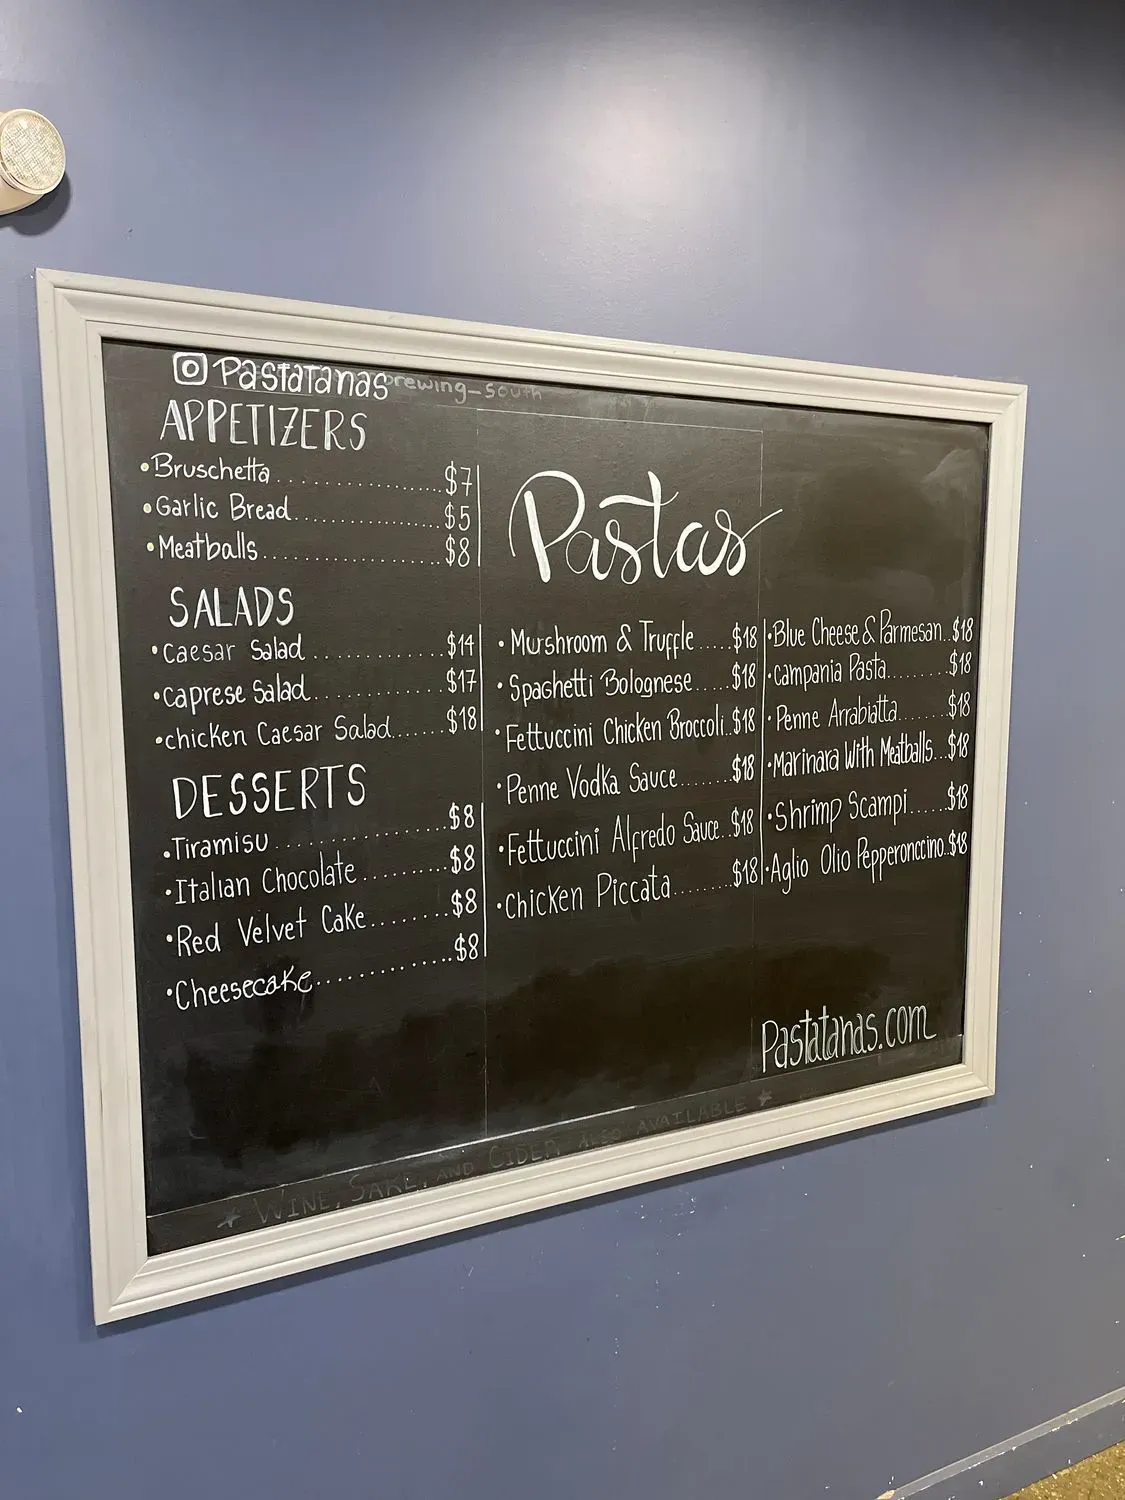 Pastatanas
rewing_south
APPETIZERS
•Bruschetta....................$7
•Garlic Bread....................$5
•Meatballs....................$8
SALADS
•Caesar Salad..............$14
•Caprese Salad..............$17
•Chicken Caesar Salad.......$18
DESSERTS
•Tiramisu..................$8
•Italian Chocolate.........$8
•Red Velvet Cake........$8
•Cheesecake..............$8
Pastas
•Murshroom & Truffle.....$18
•Spaghetti Bolognese.....$18
•Fettuccini Chicken Broccoli..$18
•Penne Vodka Sauce.......$18
•Fettuccini Alfredo Sauce..$18
•Chicken Piccata........$18
•Blue Cheese & Parmesan..$18
•Campania Pasta........$18
•Penne Arrabiatta.......$18
•Marinara With Meatballs...$18
•Shrimp Scampi......$18
•Aglio Olio Pepperonccino..$18
Pastatanas.com
* WINE, SAKE, AND CIDER ALSO AVAILABLE *